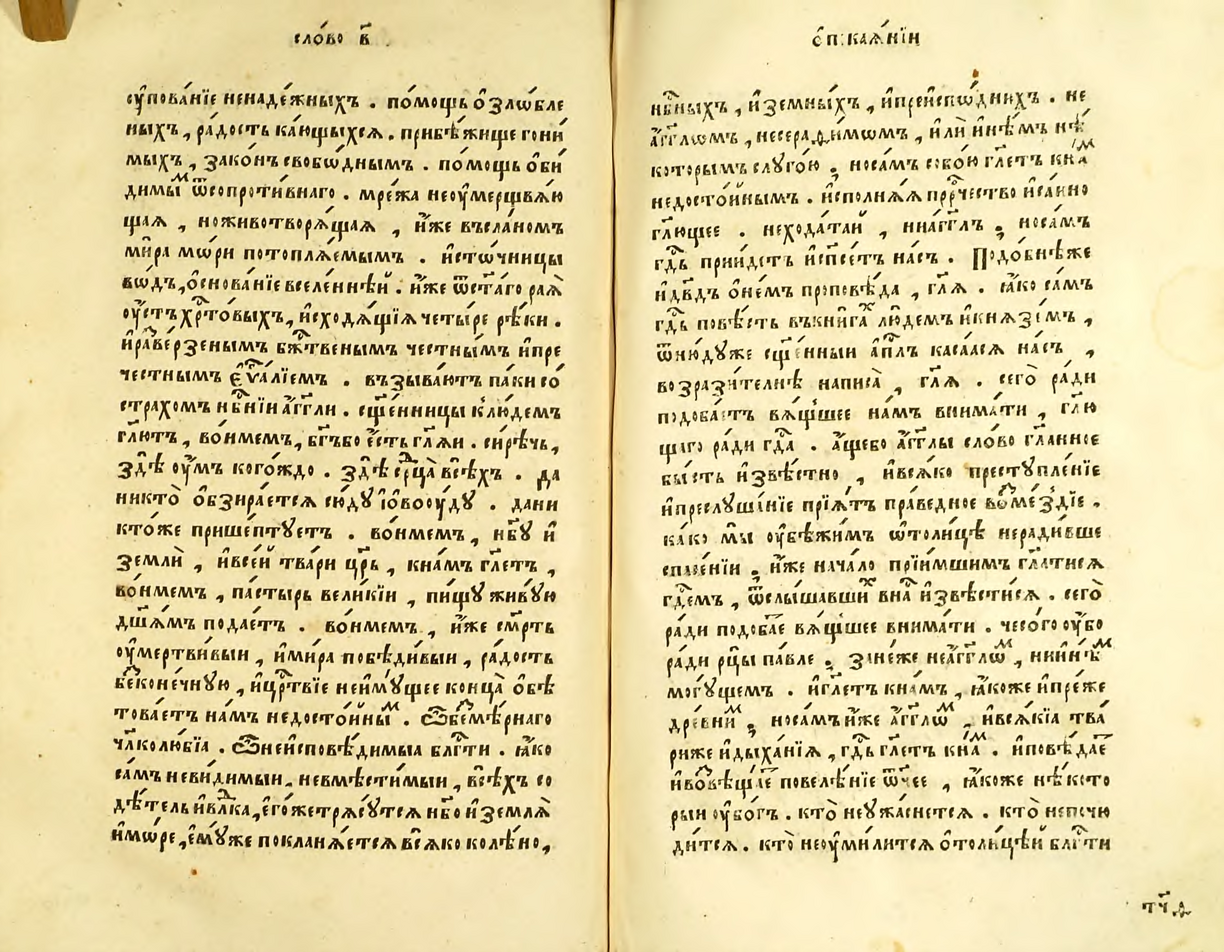 сло́во в҃
ᲂу҆пова́нїе ненаде́жныхъ . по́мощь ѻ҆зло́бле
ныхъ , ра́дость ка́ющыхсѧ . прибѣ́жище гони́
мыхъ , зако́нъ свобѡ́днымъ . по́мощь ѻ҆би́
димыⷨ ѿсопроти́внаго . мре́жа неᲂу҆мерщвлѧ́ю
щаѧ , ноживотворѧ́щаѧ , и҆́же въсла́номъ
ми́ра мѡ́ри потоплѧ́емымъ . и҆сто́чницы
во́дъ , ѻ҆снова́нїе вселе́ннѣй . и҆́же ѿст҃а́го раѧ̀
ᲂу҆́стъ хрⷭ҇то́выхъ , и҆сходѧ́щїѧ четы́ре рѣ́ки .
и҆ра̑вве́рзенымъ бж҃твенымъ че́стнымъ и҆пре
че́стнымъ є҆ѵⷢ҇а́лїемъ . възыва́ютъ па́ки со́
стра́хомъ нб҃нїи а҆́гг҃ли . сщ҃е́нницы клю́демъ
гл҃ютъ , во́нмемъ , бг҃ъбо є҆́сть гл҃ѧи . си́рѣчь ,
здѣ̀ ᲂу҆́мъ кого́ждо . здѣ̀ срⷣца̀ всѣ́хъ . да
никто̀ ѻ҆бзира́етсѧ сю́дꙋ і҆ово ᲂу҆́дꙋ . дани
кто́же пришепта́етъ . во́нмемъ , нб҃ꙋ и҆
землѝ , и҆все́й тва́ри цр҃ь , кна́мъ гл҃етъ ,
во́нмемъ , па́стырь вели́кїи , пи́щꙋ живꙋ́ю
дш҃а́мъ подае́тъ . во́нмемъ , и҆́же сме́рть
ᲂу҆мертви́выи , и҆ми́ра побѣди́выи , ра́дость
беⷥконе́чнꙋю , и҆црⷭ҇твїе неимꙋ́щее конца̀ ѻ҆бѣ
това́етъ на́мъ недосто́йныⷨ . Ѽбеⷥмѣ́рнаго
чл҃колю́бїа . Ѽнеисповѣ́димыа бл҃гⷣти . ꙗ҆́ко
са́мъ неви́димыи , невмѣсти́мыи , всѣ́хъ со
дѣ́тель и҆влⷣка , є҆го́же трѧсꙋ́тсѧ нб҃о и҆ землѧ̀
и҆мо́ре , є҆мꙋ́же покланѧ́етсѧ всѧ́ко колѣ́но ,
ѻ҆ п: каѧ́нїи
нб҃ныхъ , и҆земны́хъ , и҆преиспо́днихъ . не
а҆́гг҃ломъ , несерафи́момъ , и҆лѝ и҆нѣ́мъ нѣ́
которымъ слꙋго́ю , носа́мъ собо́ю гл҃етъ кнаⷨ
недосто́йнымъ . и҆сполнѧ́ѧ прⷪ҇ро́чество и҆са́ино
гл҃ющее . неходата́й , ниа҆́гг҃лъ , носа́мъ
гдⷭ҇ь прїи́детъ и҆спⷭ҇е́тъ на́съ . Подо́бнѣже
и҆дв҃дъ ѻ҆не́мъ проповѣ́да , гл҃ѧ . ꙗ҆́ко са́мъ
гдⷭ҇ь повѣ́сть вкни́гаⷯ лю́демъ и҆кнѧзе́мъ ,
ѿню́дꙋже сщ҃е́нныи а҆пⷭ҇лъ каса́асѧ на́съ ,
возрази́телнѣ написа̀ , гл҃ѧ . сего̀ ра́ди
подоба́етъ вѧ́щшее на́мъ внима́ти , гл҃ю
щаго ра́ди гдⷭ҇а . а҆́щебо а҆́гг҃лы сло́во гл҃анное
бы́сть и҆звѣ́стно , и҆всѧ́ко престꙋпле́нїе
и҆преслꙋша́нїе прїѧ́тъ пра́ведное воⷥме́здїе .
ка́ко мы̀ ᲂу҆бѣжи́мъ ѡ҆толи́цѣ неради́вше
спⷭ҇е́нїи , и҆́же нача́ло прїи́мшимъ гл҃атисѧ
гдⷭ҇емъ , ѿслы́шавшиⷯ внⷭ҇а и҆звѣ́стисѧ . сего̀
ра́ди подоба́е вѧ́щшее внима́ти . чесо́го ᲂу҆́бо
ра́ди рцы̀ па́вле , зане́же неа҆́гг҃лоⷨ , ниинѣⷨ
могꙋ́щемъ . и҆гл҃етъ кна́мъ , ꙗ҆́коже и҆пре́же
дре́вниⷨ , носа́мъ и҆́же а҆́гг҃лоⷨ , и҆всѧ́кїа тва́
ри́же и҆дыха́нїѧ , гдⷭ҇ь гл҃етъ кнаⷨ . и҆повѣ́дае
и҆воⷥвѣща́е повелѣ́нїе ѻ҆́ч҃ее , ꙗ҆́коже нѣ́кото
рыи ᲂу҆бо́гъ . кто̀ неᲂу҆жа́снетсѧ . кто̀ непочю
ди́тсѧ . кто̀ неᲂу҆мили́тсѧ ѻ҆толи́цѣй бл҃гⷣти